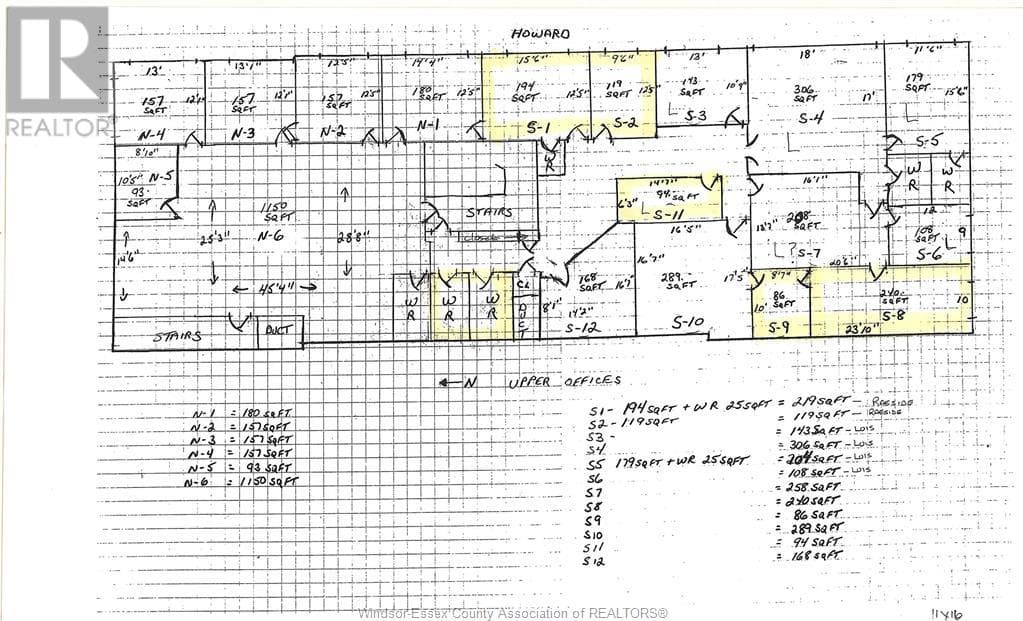 HOWARD
13' 13'1" 12'5" 14'4" 15'6" 9'6" 13' 18' 11'6"
157 SQFT 12'1" N-4
157 SQFT 12'1" N-3
157 SQFT 12'5" N-2
180 SQFT 12'5" N-1
194 SQFT 12'5" S-1
119 SQFT 12'5" S-2
143 SQFT 10'9" S-3
306 SQFT 17' S-4
179 SQFT 15'6" S-5
8'10"
10'5" N-5
93 SQFT
1150 SQFT
N-6
25'3" 28'8"
14'6"
45'4"
STAIRS
DUCT
STAIRS
CLOSET
WR
WR WR WR
CL
DUCT
14'7"
94 SQFT
6'3"
S-11
16'5"
16'7"
289 SQFT
17'5"
S-10
168 SQFT
16'7"
8'1"
14'2"
S-12
16'1"
13'7"
L? S-7
20'6"
WR WR
12
108 SQFT 9
L
S-6
8'7"
86 SQFT
10'
S-9
240 SQFT
10
S-8
23'10"
← N UPPER OFFICES
N-1 = 180 SQFT
N-2 = 157 SQFT
N-3 = 157 SQFT
N-4 = 157 SQFT
N-5 = 93 SQFT
N-6 = 1150 SQFT
S1 - 194 SQFT + WR 25 SQFT = 219 SQFT
S2 - 119 SQFT = 119 SQFT
S3 - = 143 SQFT - LOIS
S4 = 306 SQFT - LOIS
S5 179 SQFT + WR 25 SQFT = 204 SQFT - LOIS
S6 = 108 SQFT - LOIS
S7 = 258 SQFT
S8 = 240 SQFT
S9 = 86 SQFT
S10 = 289 SQFT
S11 = 94 SQFT
S12 = 168 SQFT
11x16
REALTORS®
REALTOR
Windsor-Essex County Association of REALTORS®